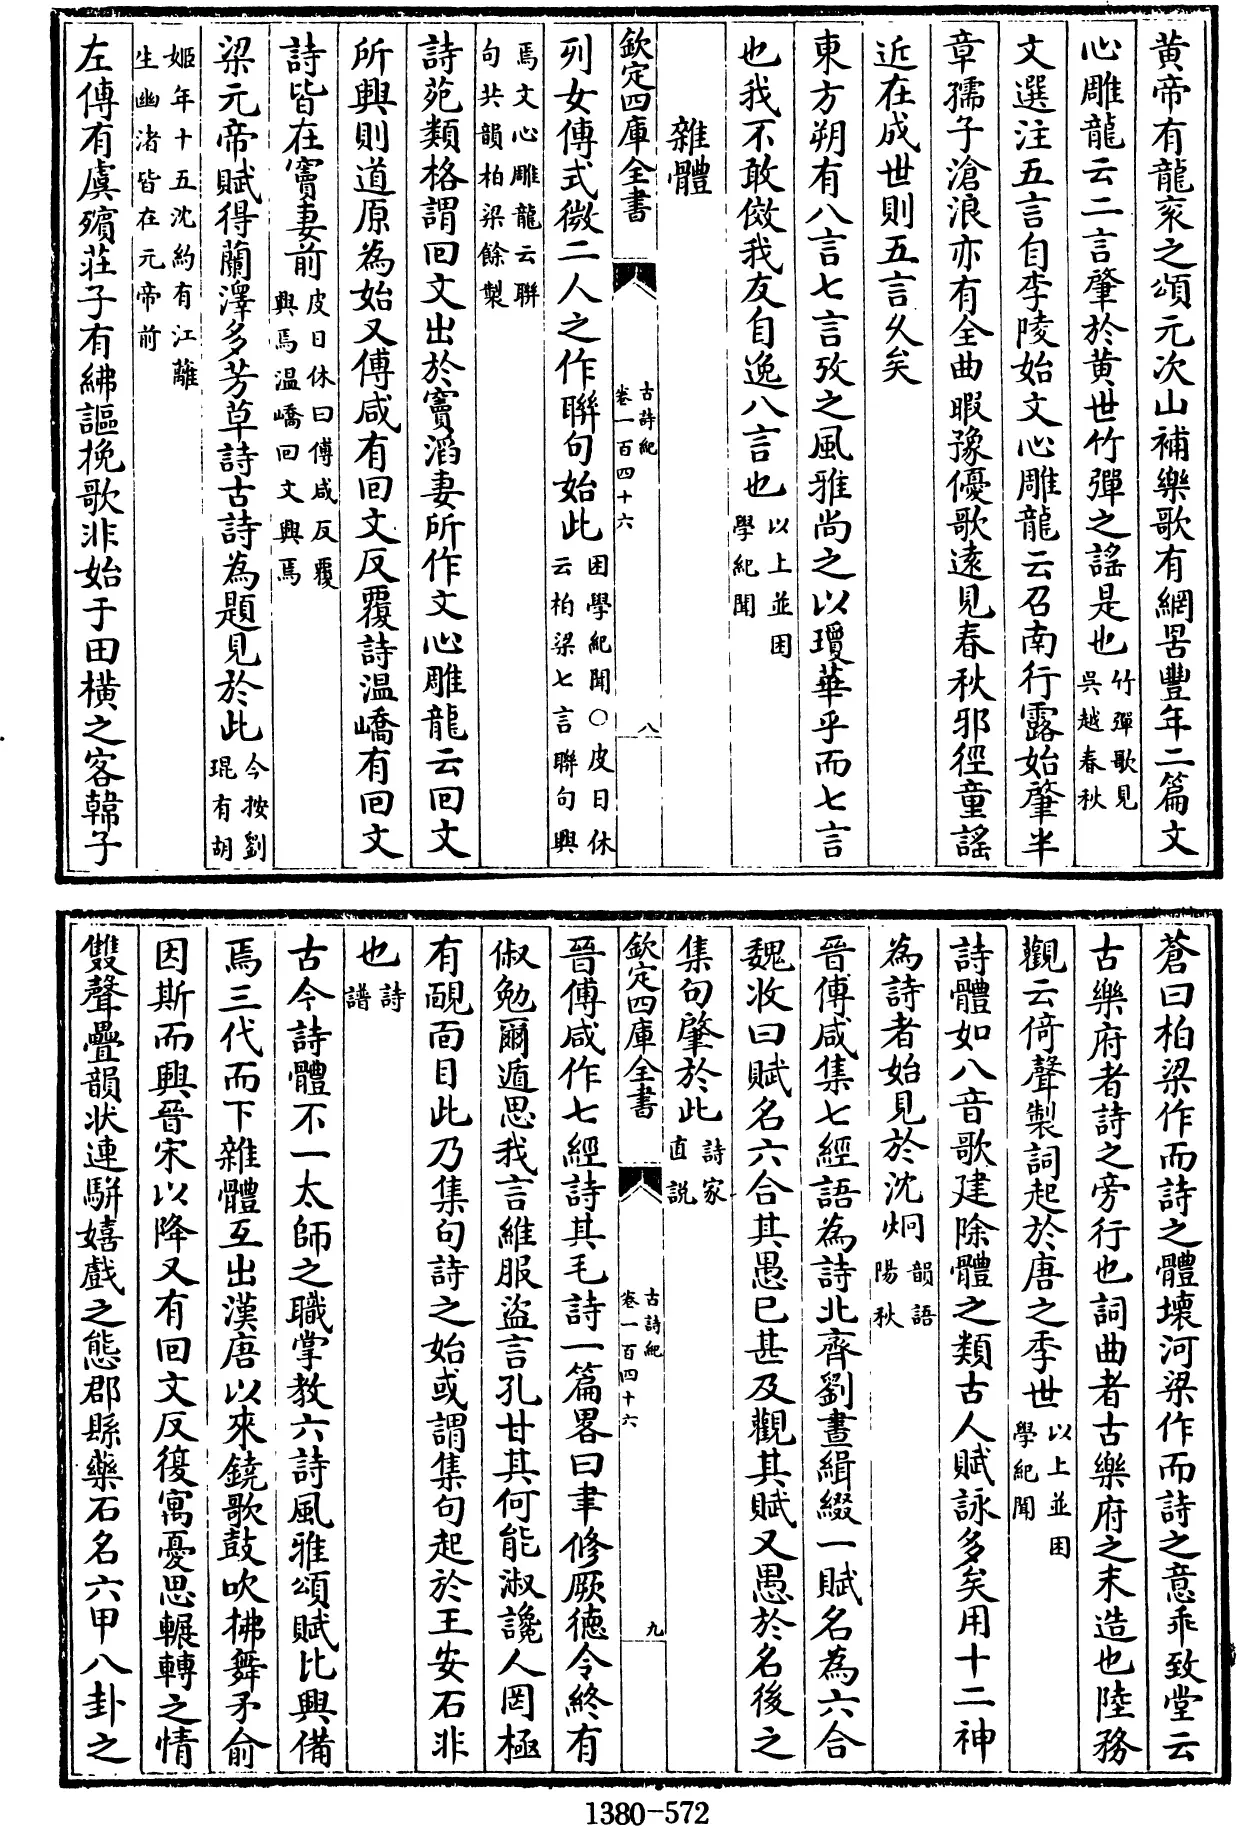 黄帝有龍衮之頌元次山補樂歌有網罟豐年二篇文
心雕龍云二言肇於黄世竹彈之謡是也竹彈歌見吳越春秋
文選注五言自李陵始文心雕龍云召南行露始肇半
章孺子滄浪亦有全曲暇豫優歌逺見春秋邪徑童謡
近在成世則五言乆矣
東方朔有八言七言攷之風雅尚之以瓊華乎而七言
也我不敢傚我友自逸八言也以上並困學紀聞
雜體
欽定四庫全書
古詩紀
卷一百四十六
八
列女傳式微二人之作聨句始此困學紀聞○皮日休云柏梁七言聨句興
焉文心雕龍云聨句共韻柏梁餘製
詩苑類格謂回文出於竇滔妻所作文心雕龍云回文
所興則道原為始又傅咸有回文反覆詩温嶠有回文
詩皆在竇妻前皮日休曰傅咸反覆興焉温嶠回文興焉
梁元帝賦得蘭澤多芳草詩古詩為題見於此今按劉琨有胡
姬年十五沈約有江蘺生幽渚皆在元帝前
左傳有虞殯莊子有紼謳挽歌非始于田横之客韓子
蒼曰柏梁作而詩之體壊河梁作而詩之意乖致堂云
古樂府者詩之旁行也詞曲者古樂府之末造也陸務
觀云倚聲製詞起於唐之季世以上並困學紀聞
詩體如八音歌建除體之類古人賦詠多矣用十二神
為詩者始見於沈炯韻語陽秋
晉傅咸集七經語為詩北齊劉晝緝綴一賦名為六合
魏收曰賦名六合其愚已甚及觀其賦又愚於名後之
集句肇於此詩家直説
欽定四庫全書
古詩紀
卷一百四十六
九
晉傅咸作七經詩其毛詩一篇畧曰聿修厥德令終有
俶勉爾遁思我言維服盜言孔甘其何能淑讒人罔極
有靦面目此乃集句詩之始或謂集句起於王安石非
也詩譜
古今詩體不一太師之職掌教六詩風雅頌賦比興備
焉三代而下雜體互出漢唐以來鐃歌鼓吹拂舞矛俞
因斯而興晉宋以降又有回文反復寓憂思輾轉之情
雙聲疊韻状連駢嬉戲之態郡縣藥石名六甲八卦之
1380-572